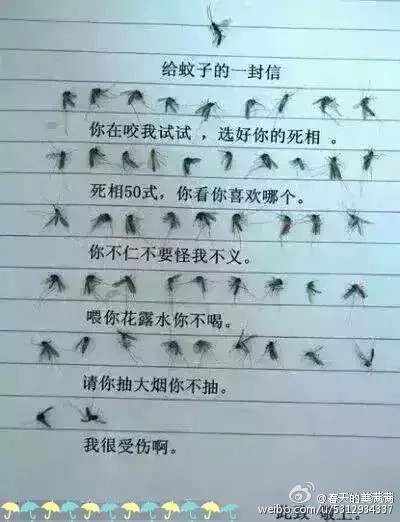 给蚊子的一封信
你在咬我试试，选好你的死相。
死相50式，你看你喜欢哪个。
你不仁不要怪我不义。
喂你花露水你不喝。
请你抽大烟你不抽。
我很受伤啊。
此致 敬上。
@春天的美满满
weibo.com/u/5312934337